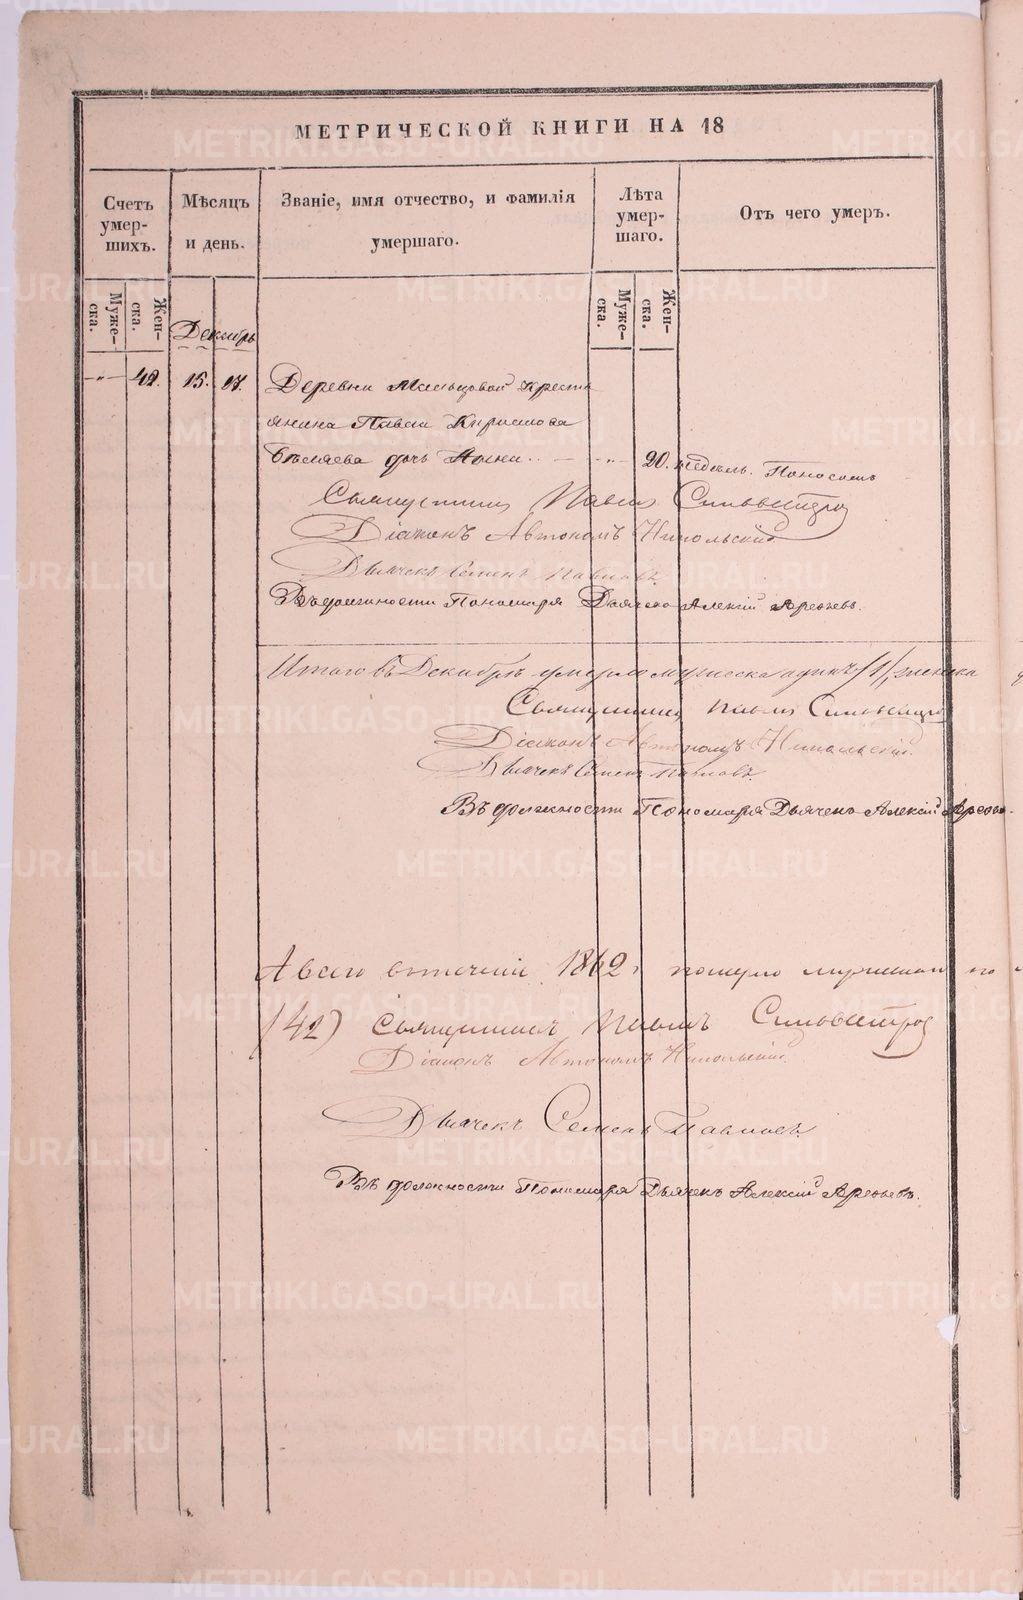 МЕТРИЧЕСКОЙ КНИГИ НА 18
Счетъ умер- шихъ.
Мѣсяцъ и день.
Званіе, имя отчество, и фамилія умершаго.
Лѣта умер- шаго.
Отъ чего умеръ.
Муже- ска.
Жен- ска.
Муже- ска.
Жен- ска.
Декабрь
-"- 42. 15. 17. Деревни Мальцовой кресть
янина Павла Кирилова
Бѣляева дочь Анна .. - - "- 20. недѣль. Поносомъ
Священникъ Павелъ Сильвестров
Діаконъ Автономъ Никольскій.
Дьячекъ Семенъ Павловъ.
Въ должности Пономаря Дьячекъ Алексій Арефьевъ.
Итого въ Декабрѣ умерло мужеска одинъ /1/, женска
Священникъ Павелъ Сильвестров
Діаконъ Автономъ Никольскій.
Дьячекъ Семенъ Павловъ.
Въ должности Пономаря Дьячекъ Алексій Арефье
А всего втеченіи 1862 г. померло мужескаго по
(42) Священникъ Павелъ Сильвестров
Діаконъ Автономъ Никольскій.
Дьячекъ Семенъ Павловъ.
Въ должности Пономаря Дьячекъ Алексій Арефьевъ.
METRIKI.GASO-URAL.RU